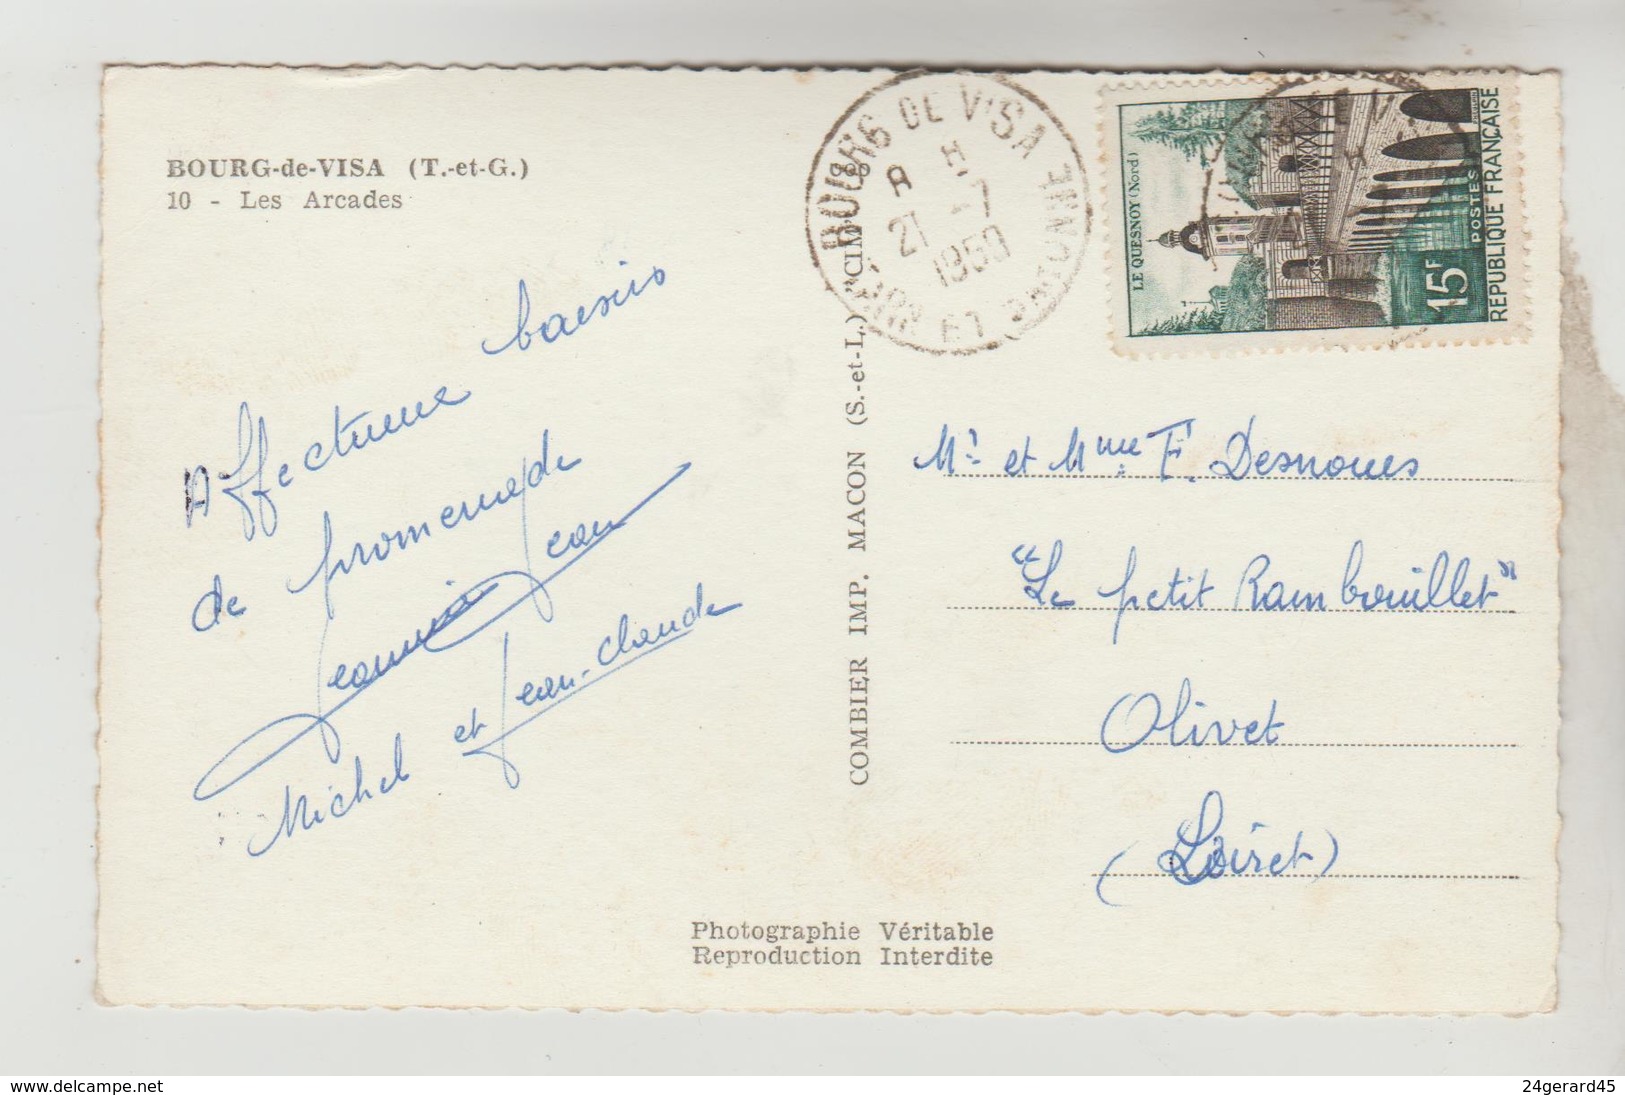 BOURG-de-VISA (T.-et-G.)
10 - Les Arcades
Affectueux baisers
de promenade
Jeannine Jean
Michel et Jean-claude
COMBIER IMP. MACON (S.-et-L.) "CIM"
BOURG DE VISA
TARN ET GARONNE
21 -7
LE QUESNOY (Nord)
15F
POSTES
REPUBLIQUE FRANÇAISE
Mr et Mme F. Desnoues
"Le petit Rambouillet"
Olivet
(Loiret)
Photographie Véritable
Reproduction Interdite
www.delcampe.net
24gerard45